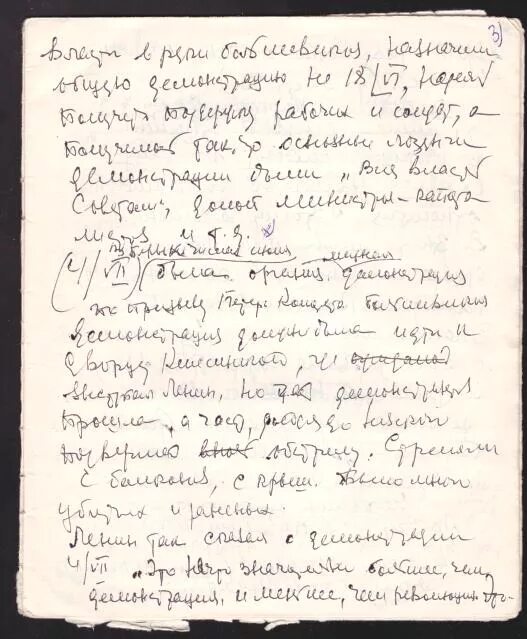 3)
власти в руки большевиков, назначили
общую демонстрацию на 18/VI, надеясь
получить поддержку рабочих и солдат, а
получилось так, что основные лозунги
демонстрации были „Вся власть
Советам", долой министров-капита
листов и т.д.
мирная
(4/VII) была организ. демонстрация
по призыву Петрогр. Комитета большевиков
Демонстрация должна была идти к
Дворцу Кшесинской, где
выступал Ленин, но демонстрация
прошла, а часть, дойдя до Невского
подверглась обстрелу. Стреляли
с балконов, с крыш. Было много
убитых и раненых.
Ленин так сказал о демонстрации
4/VII „Это нечто значительно большее, чем
демонстрация, и меньше, чем революция". Это-